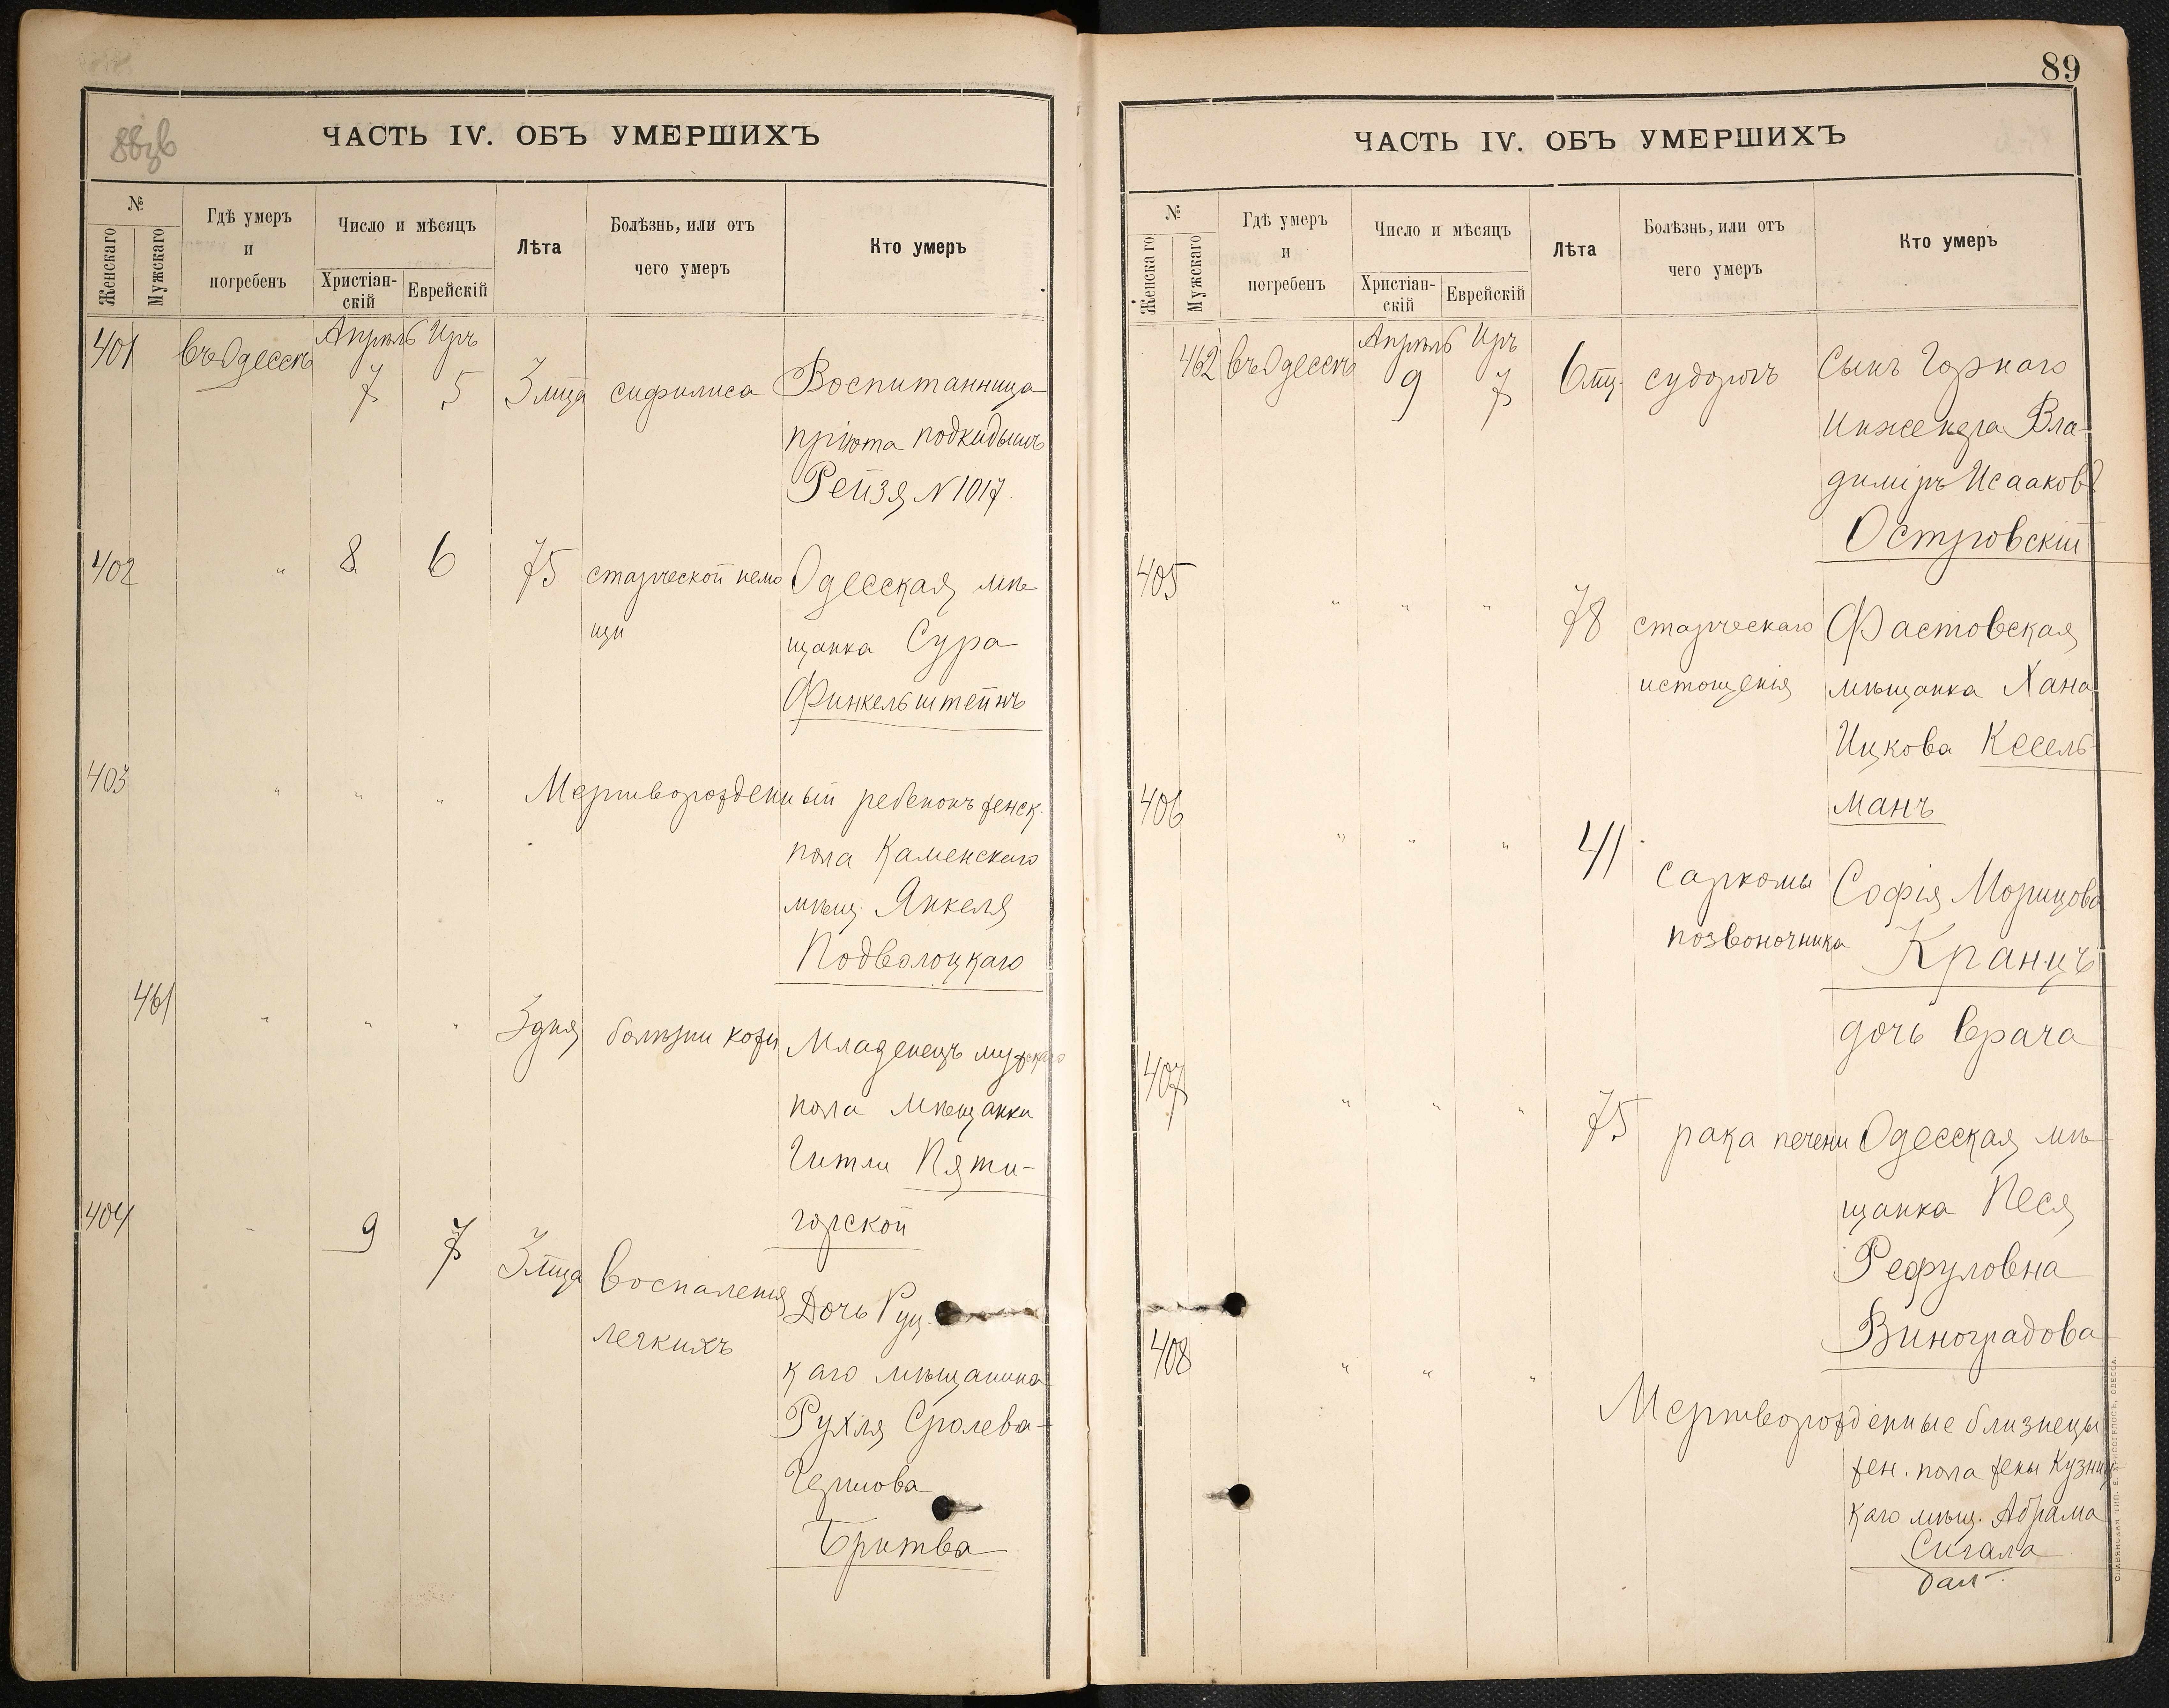 ЧАСТЬ IV. ОБЪ УМЕРШИХЪ
№
Женскаго
Мужскаго
Гдѣ умеръ
и
погребенъ
Число и мѣсяцъ
Христіан-
скій
Еврейскій
Лѣта
Болѣзнь, или отъ
чего умеръ
Кто умеръ
401 въ Одессѣ Апрѣль Иръ
7 5 3 мца сифилиса Воспитанница
пріюта подкидыш
Рейзя N 1017.
402 " 8 6 75 старческой немо Одесская мѣ-
щи
щанка Сура
Финкельштейнъ
403 " " " Мертворожденный ребенокъ женск.
пола Каменскаго
мѣщ. Янкеля
Подволоцкаго
461 " " " 3 дня болѣзни кожи Младенецъ мужскаго
пола мѣщанки
Гитли Пяти-
горской
404 " 9 7 3 мца воспаленія Дочь Рущ-
легкихъ
каго мѣщанина
Рухля Сролева-
Бритва
89
ЧАСТЬ IV. ОБЪ УМЕРШИХЪ
№
Женскаго
Мужскаго
Гдѣ умеръ
и
погребенъ
Число и мѣсяцъ
Христіан-
скій
Еврейскій
Лѣта
Болѣзнь, или отъ
чего умеръ
Кто умеръ
462 въ Одессѣ Апрѣль Иръ
9 7 6 мц. судорогъ Сынъ Горнаго
Инженера Вла-
диміръ Исааковъ
Островскій
405 " " " 78 старческаго Фастовская
истощенія мѣщанка Хана
Ицкова Кесель-
манъ
406 " " " 41 саркомы Софія Морицова
позвоночника Кранцъ
дочь врача
407 " " " 75 рака печени Одесская мѣ-
щанка Песя
Рефуловна
Виноградова
408 " " " Мертворожденные близнецы
жен. пола жены Кузниц-
каго мѣщ. Абрама
Сигала